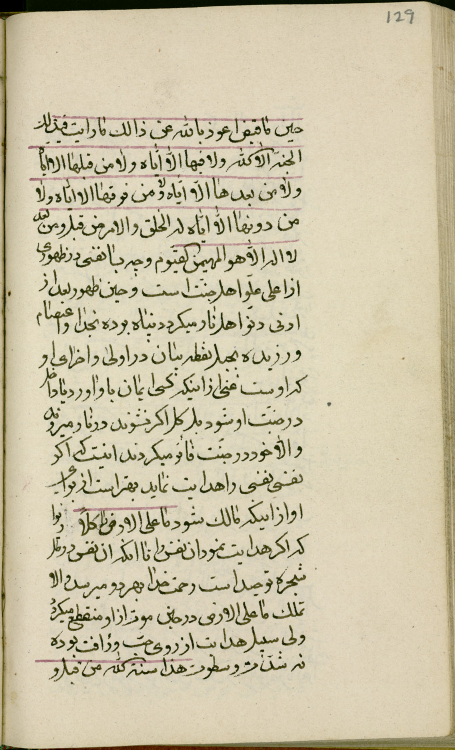 129
حین ما قبض اعوذ بالله عن ذالک ما رایت فی تلک
الجنة الا الله ولا فیها الا ایاه ولا من قبلها الا ایاه
ولا من بعدها الا ایاه ولا من فوقها الا ایاه ولا
من دونها الا ایاه له الخلق والامر من قبل ومن بعد
لا اله الا هو المهیمن القیوم وچه بسا نفسی در ظهوری
از اعلی علو اهل جنت است و حین ظهور بعد از
ادنی دنو اهل نار میگردد پناه بوده بخدا و اعتصام
ورزیده بحبل نقطه بیان در اولی و اخرای او
که اوست غنی از اینکه کسی ایمان باو اورد یا داخل
در جنت او شود بل کل اگر نشوند در نار میروند
والا خود در جنت قائم میگردند اینست که اگر
نفسی نفسی را هدایت نماید بهتر است از برای
او از اینکه مالک شود ما علی الارض کلها زیرا
که اگر هدایت نمود ان نفس را تا انکه ان نفس در ظل
شجره توحید است رحمت خدا بهر دو میرسد والا
تملک ما علی الارض در حین موت از او منقطع میگردد
ولی سبیل هدایت از روی حب و رأفت بوده
نه شدت و سطوت هذا سنة الله من قبل و